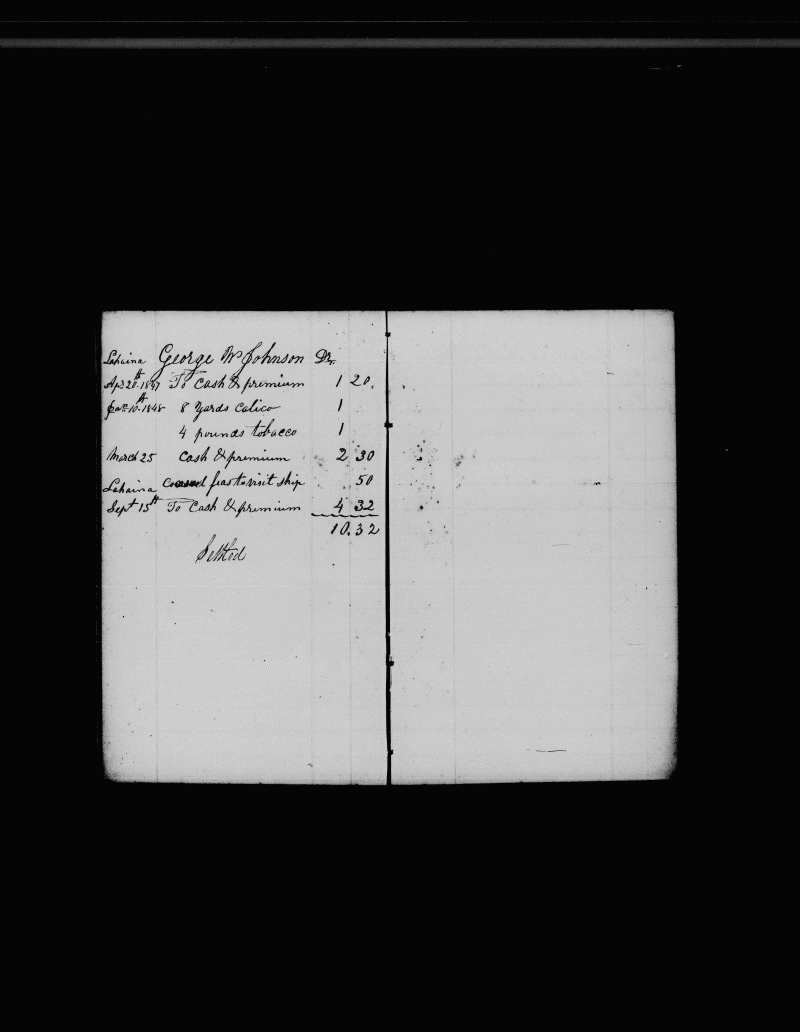 Lahaina George W Johnson Dr.
Apr 20th 1847 To Cash & premium 1 20.
10th 1848 8 Yards Calico 1
4 pounds tobacco 1
March 25 Cash & premium 2 30
Lahaina to visit ship 50
Sept 15th To Cash & premium 4 32
10.32
Settled